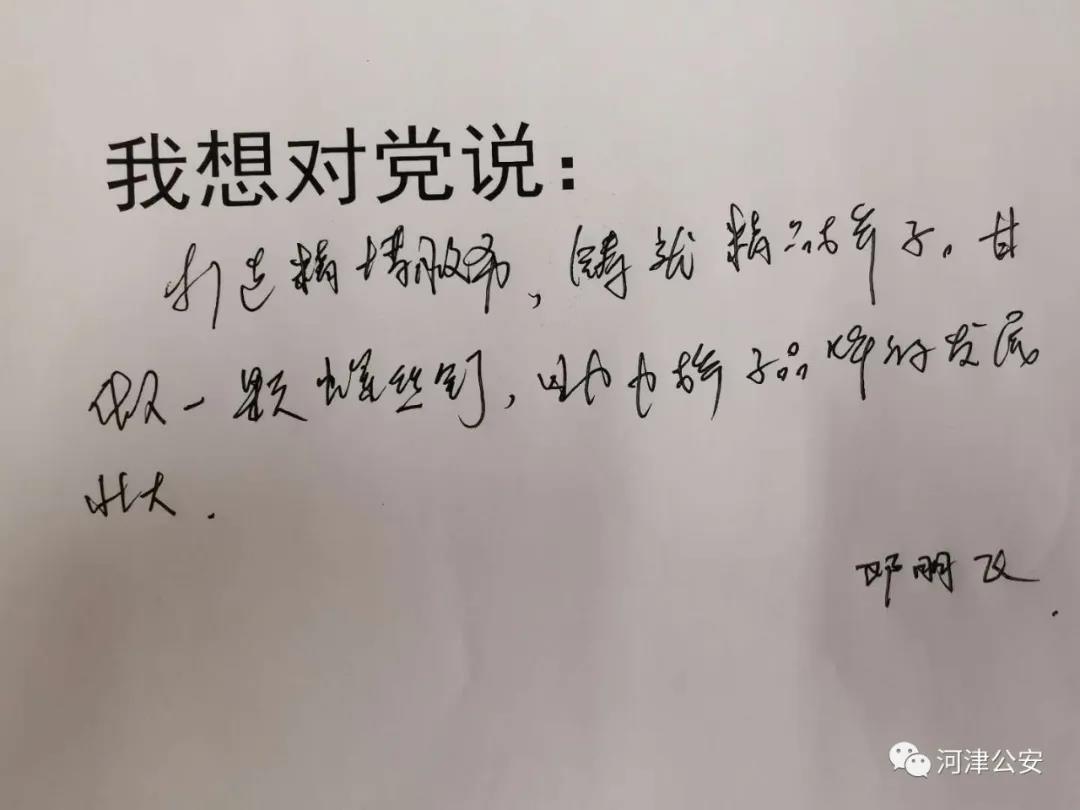 我想对党说:
打造精 服务,铸就精品 子。甘
做一颗螺丝钉,助力 子品牌的发展
壮大.
邓朋
河津公安